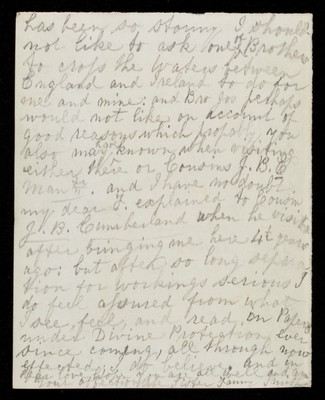 has been so stormy I should
not like to ask one of Brothers
to cross the waters between
England and Ireland to do for
me and mine: and Bro Jos perhaps
would not like on account of
good reasons which propably you
also may have known when visiting
either there or Cousins J. B. C
Man and I have no doubt
my dear F. explained to Cousin
J. B. Cumberland when he visited
after bringing me here 4½ years
ago: but after so long separa
tion for workings serious I
do feel assured from what
I see, feel, and read, on Paper
under Divine Protection ever
since coming, all through now
effected, I do believe and in
dear love, to
your affectionate Sister